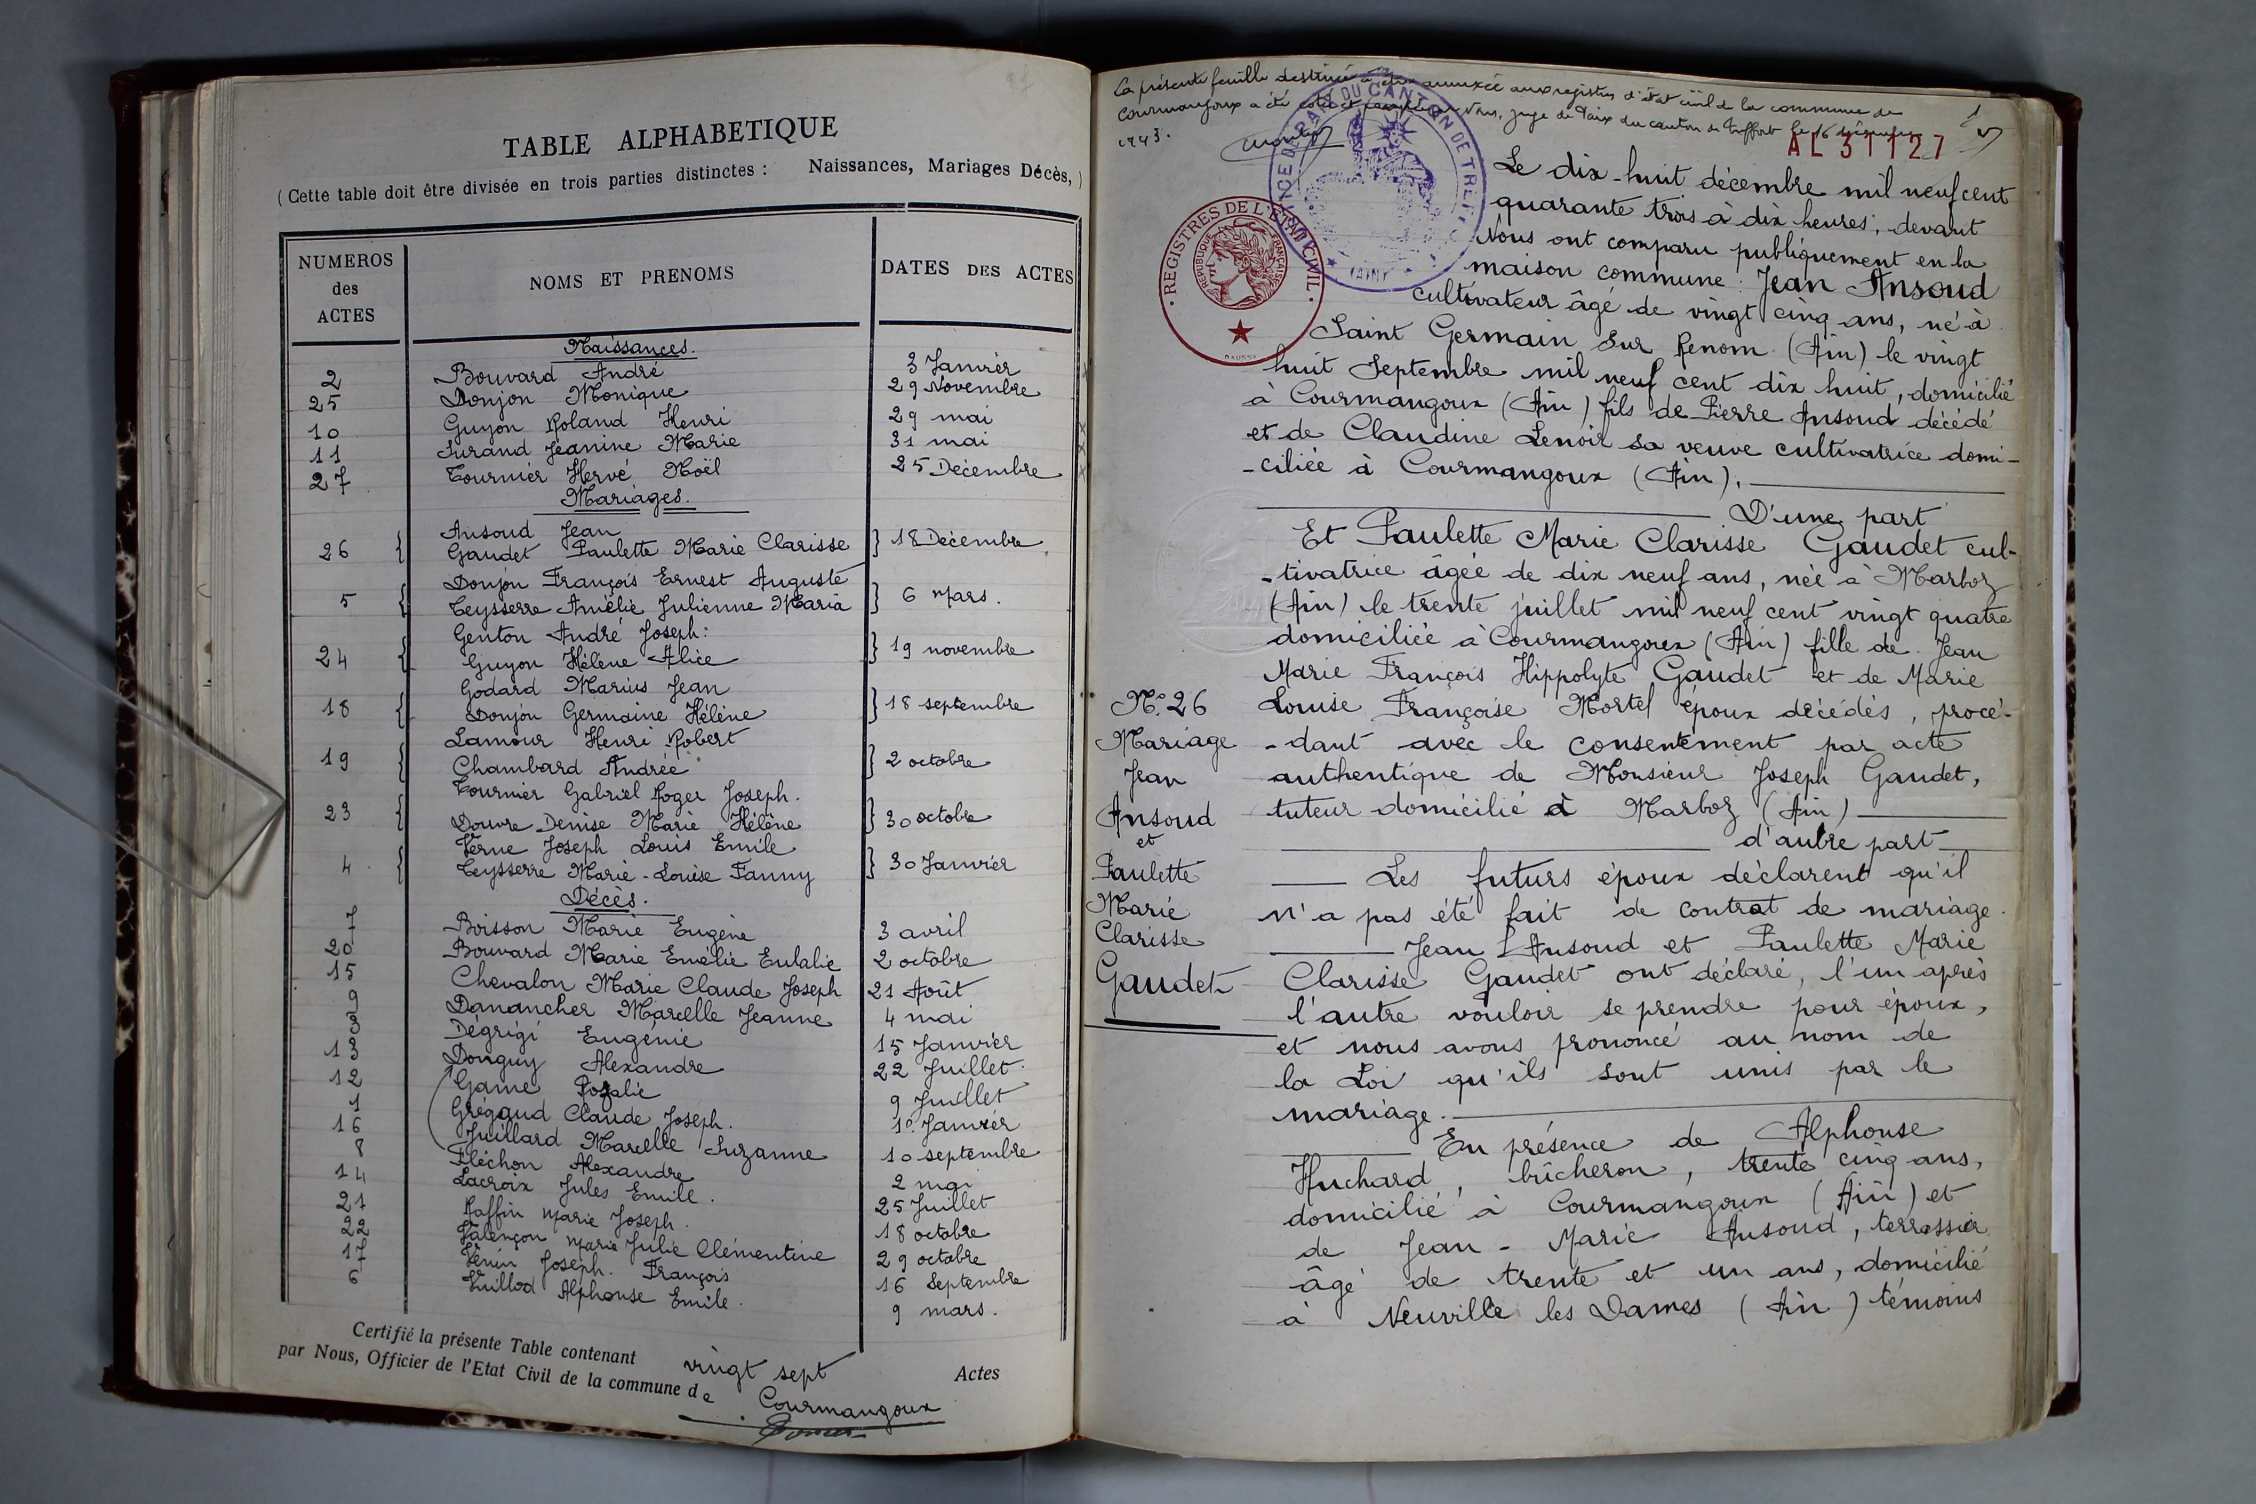 TABLE ALPHABETIQUE
(Cette table doit être divisée en trois parties distinctes : Naissances, Mariages Décès,)
NUMEROS des ACTES
NOMS ET PRENOMS
DATES DES ACTES
Naissances.
2 Bouvard André 3 Janvier
25 Donjon Monique 29 Novembre
10 Guyon Roland Henri 29 mai
11 Surand Jeanine Marie 31 mai
27 Tournier Hervé Noël 25 Décembre
Mariages.
Ansoud Jean
26 { Gaudet Paulette Marie Clarisse } 18 Décembre
Donjon François Ernest Auguste
5 { Teysserre Amélie Julienne Maria } 6 Mars.
Genton André Joseph:
24 { Guyon Hélène Alice } 19 novembre
Godard Marius Jean
18 { Donjon Germaine Hélène } 18 septembre
Lamour Henri Robert
19 { Chambard Andrée } 2 octobre
Tournier Gabriel Roger Joseph.
23 { Douvre Denise Marie Hélène } 30 octobre
Verne Joseph Louis Emile
4 { Teysserre Marie-Louise Fanny } 30 Janvier
Décès.
7 Boisson Marie Eugène 3 avril
20 Bouvard Marie Emélie Eulalie 2 octobre
15 Chevalon Marie Claude Joseph 21 Août
9 Danancher Marcelle Jeanne 4 mai
3 Dégrigi Eugénie 15 Janvier
13 Donguy Alexandre 22 Juillet
12 Game Rosalie 9 Juillet
1 Grégaud Claude Joseph. 1º Janvier
16 Juillard Marcelle Suzanne 10 septembre
8 Fléchon Alexandre 2 mai
14 Lacroix Jules Emile. 25 Juillet
21 Raffin Marie Joseph. 18 octobre
22 Valençon Marie Julie Clémentine 29 octobre
17 Venin Joseph. François 16 Septembre
6 Vuillod Alphonse Emile. 9 mars.
Certifié la présente Table contenant vingt sept Actes
par Nous, Officier de l'Etat Civil de la commune de Courmangoux
La présente feuille destinée à être annexée aux registres d'état civil de la commune de
Courmangoux a été cotée et paraphée par Nous, Juge de Paix du canton de Treffort le 16 décembre
1943.
AL 31127
JUSTICE DE PAIX DU CANTON DE TREFFORT
(AIN)
REGISTRES DE L'ETAT CIVIL
REPUBLIQUE FRANÇAISE
Le dix-huit décembre mil neuf cent
quarante trois à dix heures, devant
Nous ont comparu publiquement en la
maison commune : Jean Ansoud
cultivateur âgé de vingt cinq ans, né à
Saint Germain sur Renom (Ain) le vingt
huit Septembre mil neuf cent dix huit, domicilié
à Courmangoux (Ain) fils de Pierre Ansoud décédé
et de Claudine Lenoir sa veuve cultivatrice domi-
-ciliée à Courmangoux (Ain).
D'une part
Et Paulette Marie Clarisse Gaudet cul-
-tivatrice âgée de dix neuf ans, née à Marboz
(Ain) le trente juillet mil neuf cent vingt quatre
domiciliée à Courmangoux (Ain) fille de Jean
Marie François Hippolyte Gaudet et de Marie
Louise Françoise Mortel époux décédés, procé-
-dant avec le consentement par acte
authentique de Monsieur Joseph Gaudet,
tuteur domicilié à Marboz (Ain)
d'autre part
Les futurs époux déclarent qu'il
n'a pas été fait de contrat de mariage.
Jean Ansoud et Paulette Marie
Clarisse Gaudet ont déclaré, l'un après
l'autre vouloir se prendre pour époux,
et nous avons prononcé au nom de
la Loi qu'ils sont unis par le
mariage.
En présence de Alphonse
Huchard, bûcheron, trente cinq ans,
domicilié à Courmangoux (Ain) et
de Jean-Marie Ansoud, terrassier
âgé de trente et un ans, domicilié
à Neuville les Dames (Ain) témoins
Nº 26
Mariage
Jean
Ansoud
et
Paulette
Marie
Clarisse
Gaudet